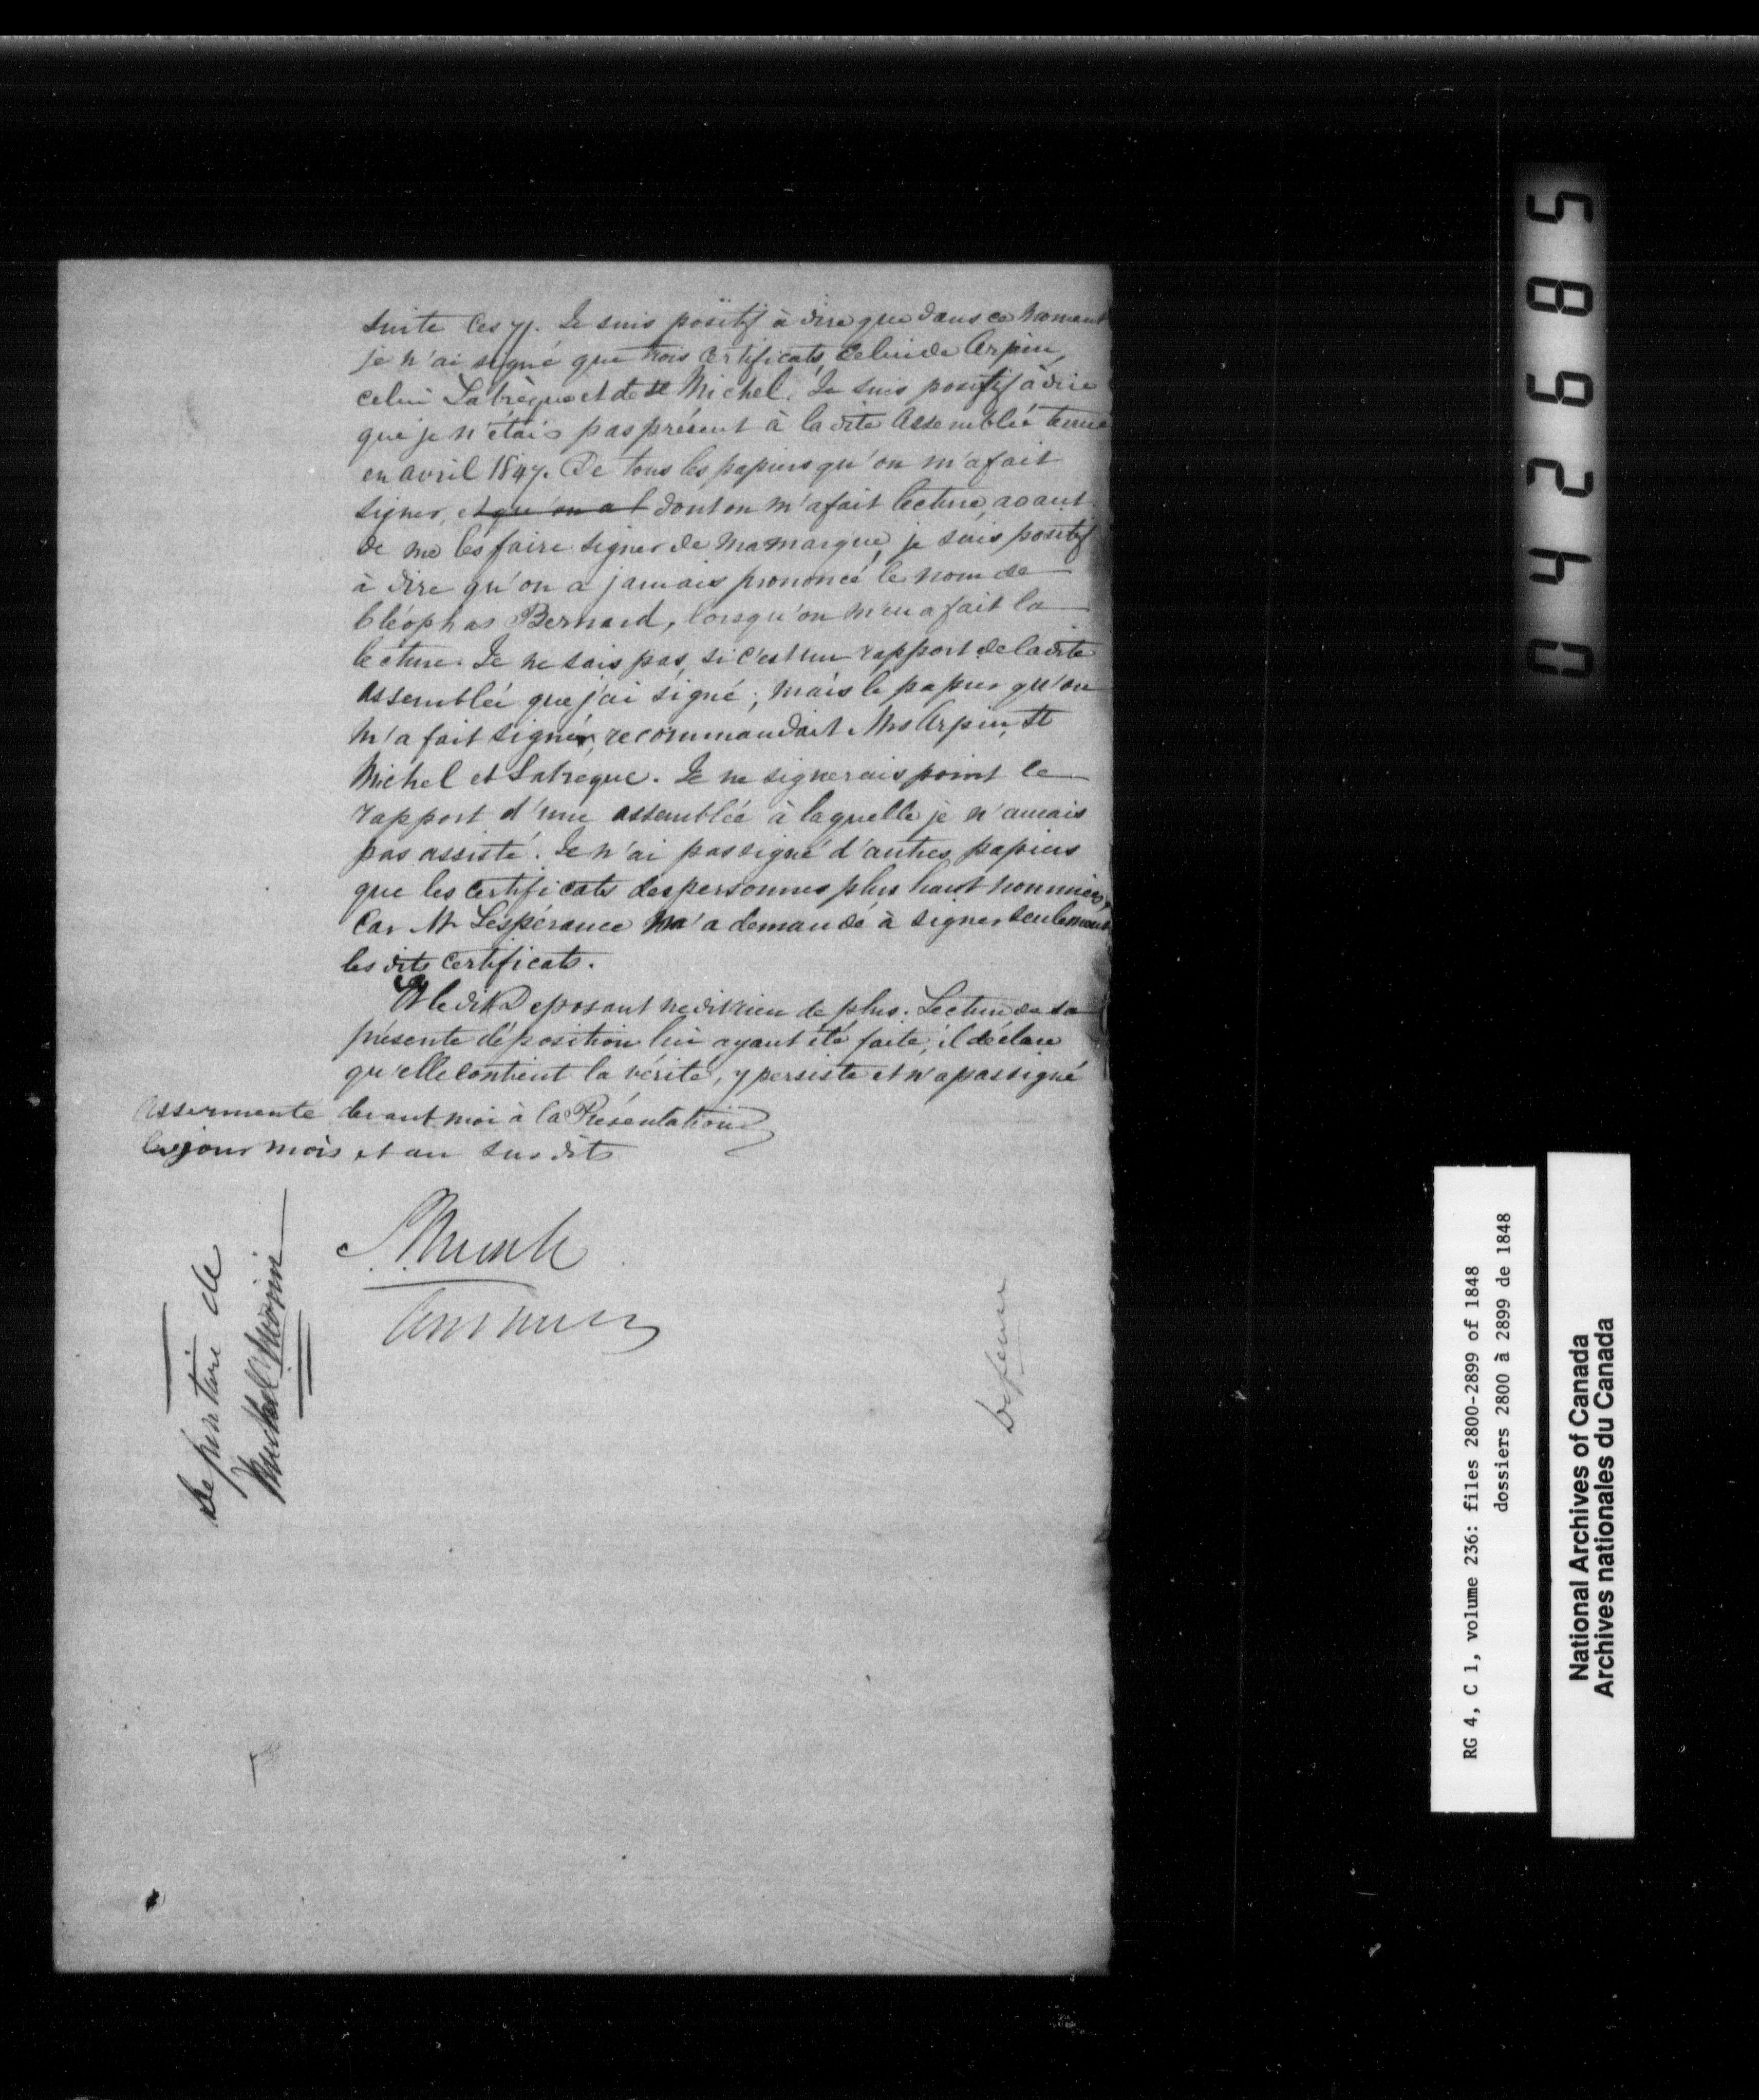 suite les y. Je suis positif à dire que dans ce moment
je n'ai signé que trois Certificats, celui de Arpin,
celui Labrèque et de St Michel. Je suis positif à dire
que je n'étais pas présent à la dite Assemblée tenue
en avril 1847. De tous les papiers qu'on m'a fait
signer, et qu'on a l dont on m'a fait lecture, avant
de me les faire signer de ma marque, je suis positif
à dire qu'on a jamais prononcé le nom de
Cléophas Bernard, lorsqu'on m'en a fait la
lecture. Je ne sais pas, si c'est un rapport de la dite
assemblée que j'ai signé; mais le papier qu'on
m'a fait signer, recommandait Mrs Arpin, St
Michel et Labrèque. Je ne signerais point le
rapport d'une assemblée à laquelle je n'aurais
pas assisté. Je n'ai pas signé d'autres papiers
que les certificats des personnes plus haut nommées,
Car Mr Lespérance m'a demandé à signer seulement
les dits certificats.
Et le dit Deposant ne dit rien de plus. Lecture de sa
présente déposition lui ayant été faite, il déclare
qu'elle contient la vérité, y persiste et n'a pas signé
Assermenté devant moi à la Présentation
les jour mois et an sus dits
Deposition de
Michel Morin
Defense
042685
RG 4, C 1, volume 236: files 2800-2899 of 1848
dossiers 2800 à 2899 de 1848
National Archives of Canada
Archives nationales du Canada